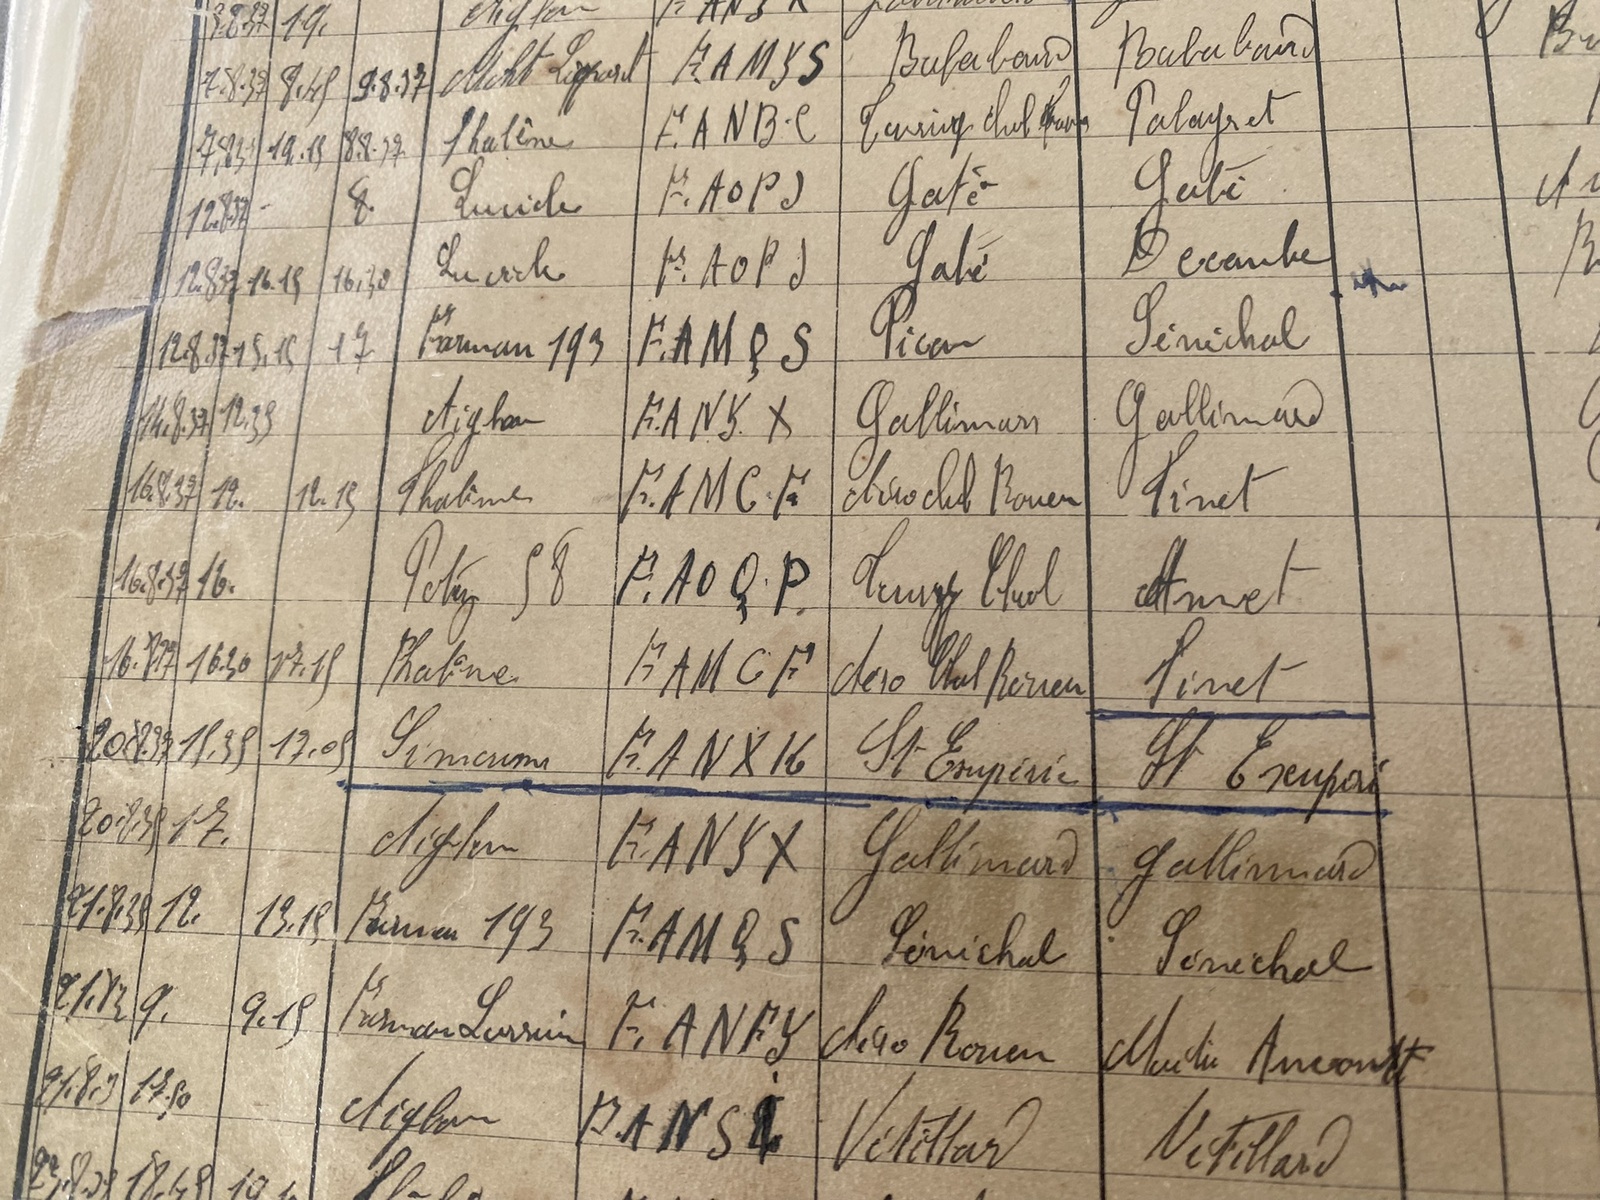 3.8.37 19. Aiglon F.ANYX
7.8.37 8.45 9.8.37 F.AMYS Bababaud Babalaud
7.8.37 19.15 8.8.37 Phalène F.ANBC Palayret
12.8.37 8. Luciole F.AOPJ Gaté Gaté
12.8.37 16.15 16.30 Luciole F.AOPJ Gaté Decambe
12.8.37 15.15 17 Farman 193 F.AMQS Picau Sénéchal
14.8.37 12.35 Aiglon F.ANYX Gallimard Gallimard
16.8.37 12. 12.15 Phalène F.AMCF Aéro club Rouen Pinet
16.8.37 16. Potez 58 F.AOQP. Club Annet
16.8.37 16.30 17.15 Phalène F.AMCF Aéro Club Rouen Pinet
20.8.37 15.35 17.05 Simoun F.ANXK St Exupérie St Exupéri
20.8.37 17. Aiglon F.ANYX Gallimard Gallimard
21.8.37 12. 13.15 Farman 193 F.AMQS Sénéchal Sénéchal
21.8.37 9. 9.15 Farman F.ANFY Aéro Rouen
21.8.3 17.50 Aiglon F.ANS Vétillard Vétillard
18.45